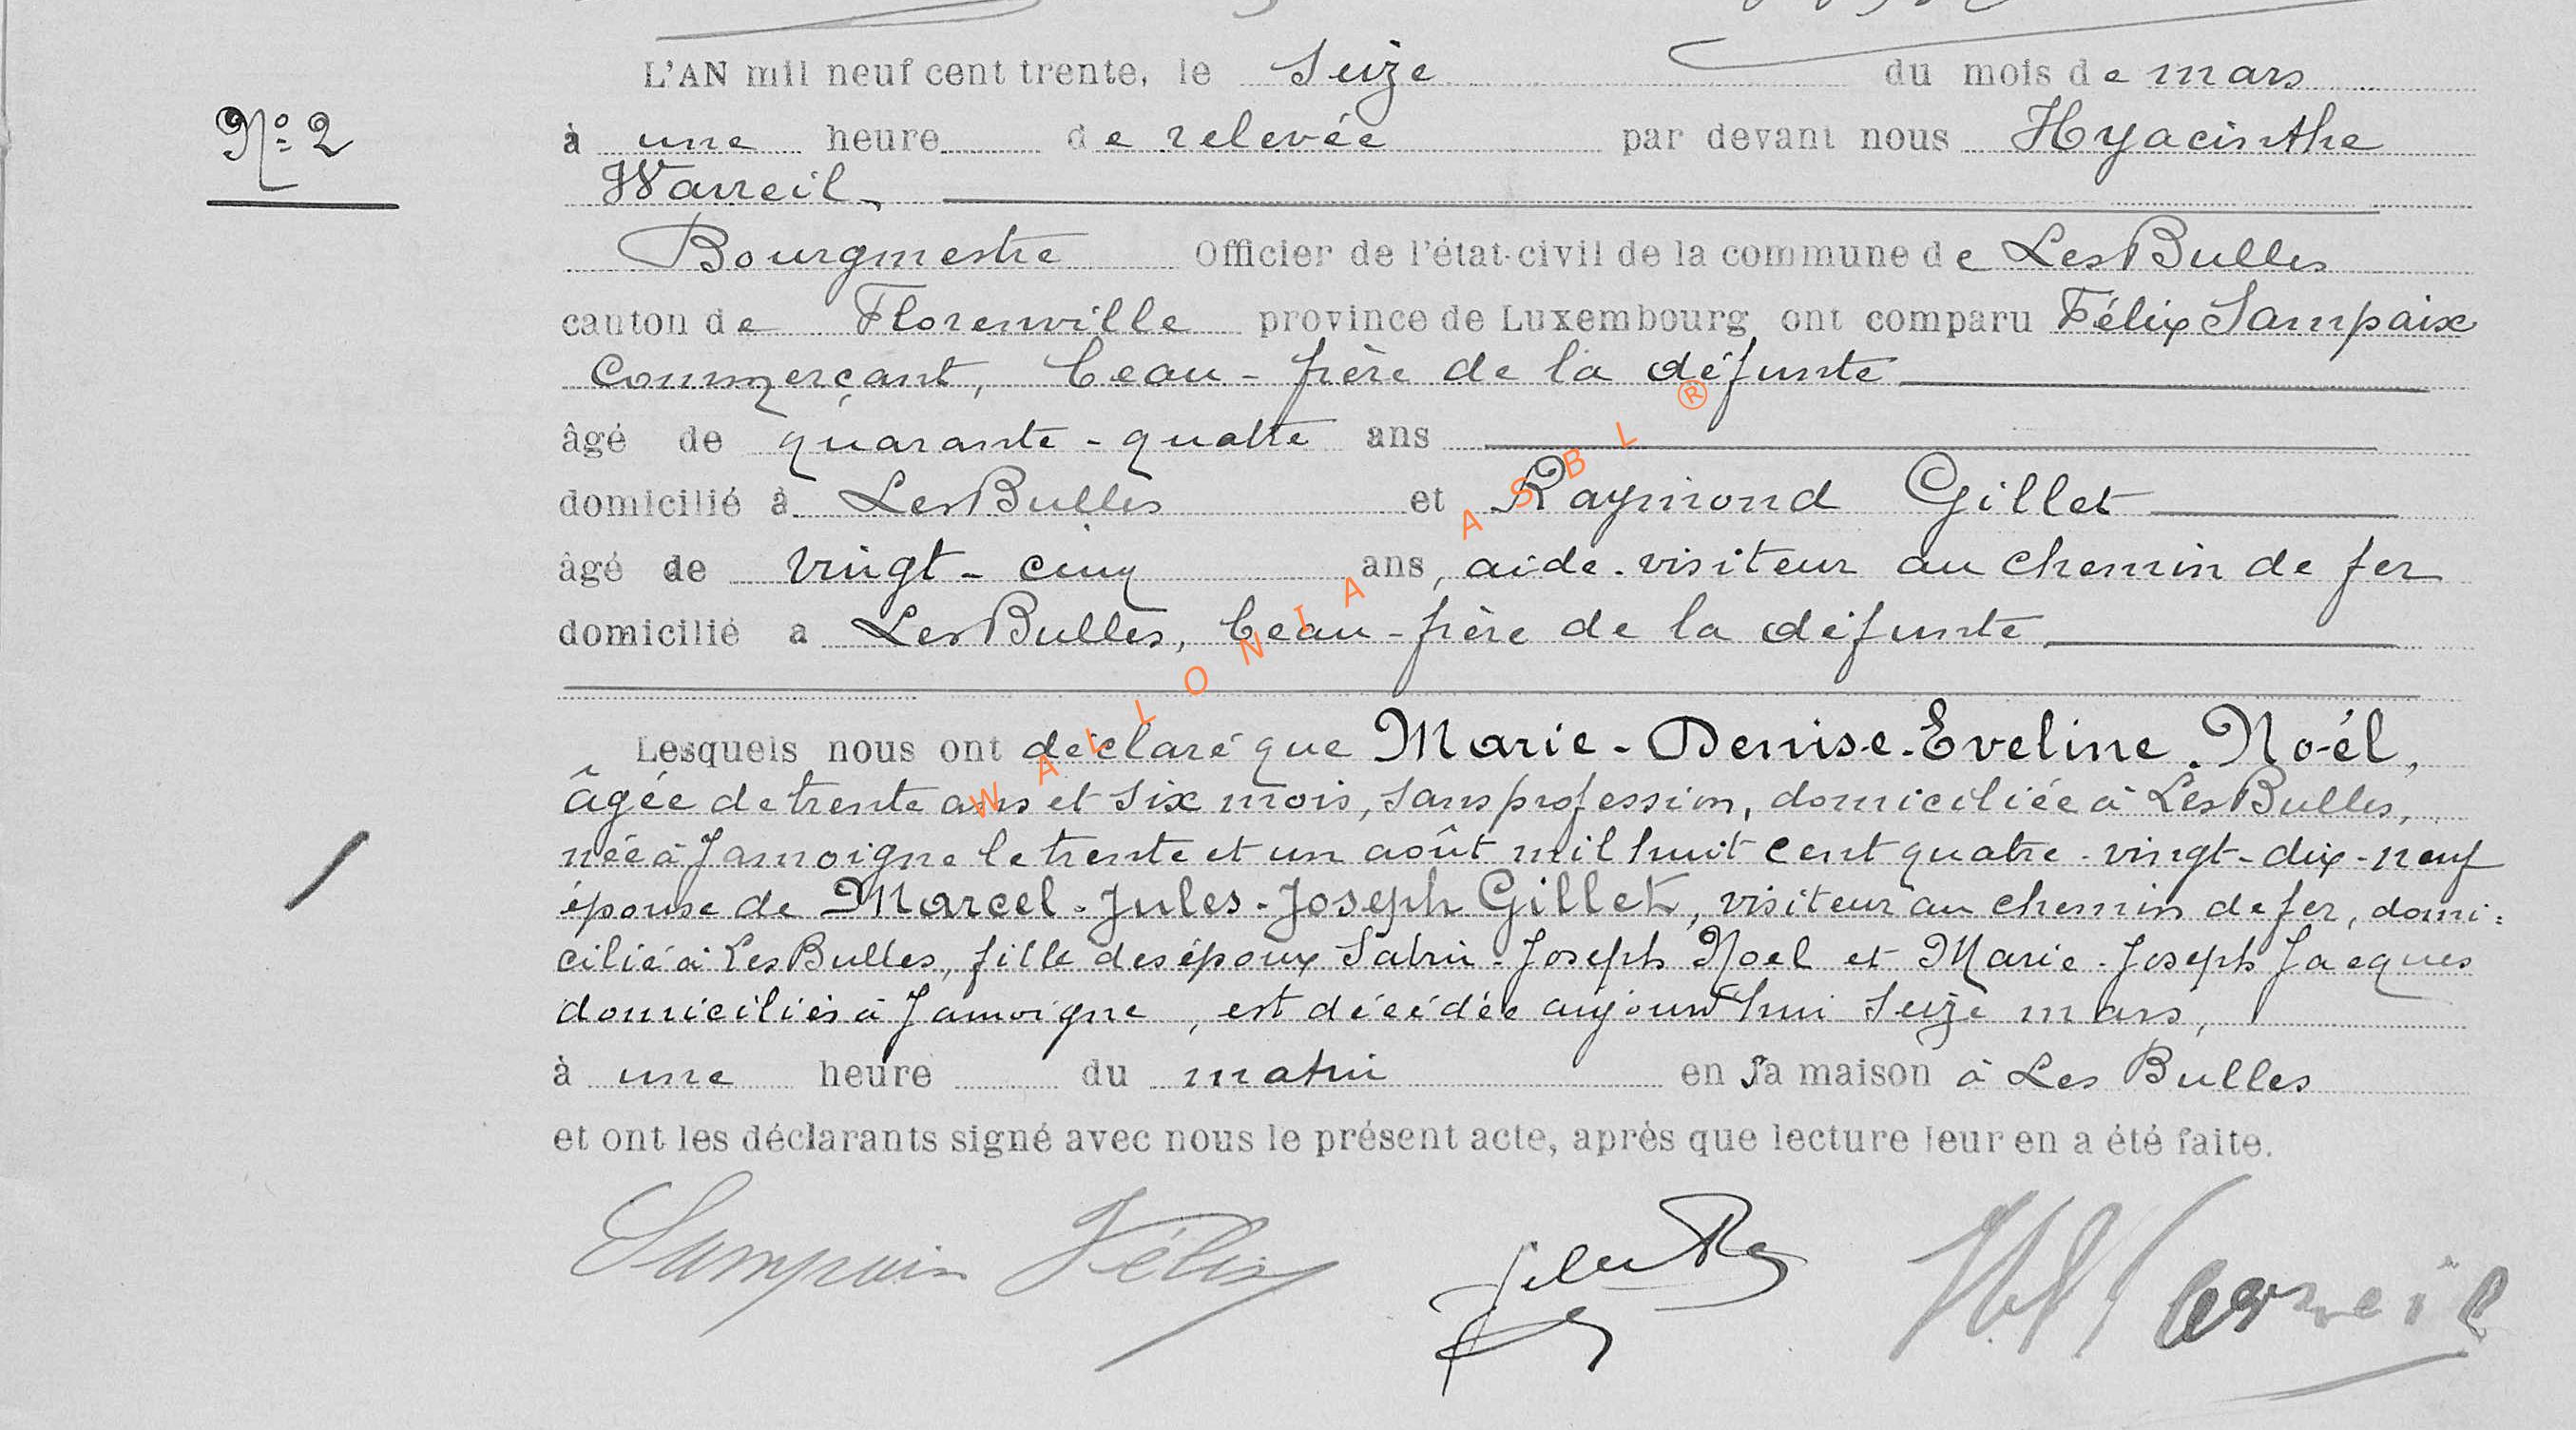 L'AN mil neuf cent trente, le Seize du mois de mars
N° 2
à une heure de relevée par devant nous Hyacinthe
Warreil,
Bourgmestre Officier de l'état-civil de la commune de Les Bulles
canton de Florenville province de Luxembourg ont comparu Félix Sampaix
Commerçant, beau-frère de la défunte
âgé de quarante-quatre ans
domicilié à Les Bulles et Raymond Gillet
âgé de vingt-cinq ans, aide-visiteur au chemin de fer
domicilié a Les Bulles, beau-frère de la défunte
Lesquels nous ont déclaré que Marie-Denise-Eveline Noël,
âgée de trente ans et six mois, sans profession, domiciliée à Les Bulles,
née à Jamoigne le trente et un août mil huit cent quatre-vingt-dix-neuf
épouse de Marcel-Jules-Joseph Gillet, visiteur au chemin de fer, domi=
cilié à Les Bulles, fille des époux Sabin-Joseph Noel et Marie-Joseph Jacques
domiciliés à Jamoigne, est décédée aujourd'hui seize mars,
à une heure du matin en sa maison à Les Bulles
et ont les déclarants signé avec nous le présent acte, après que lecture leur en a été faite.
Sampaix Félix
WALLONIA ASBL ®